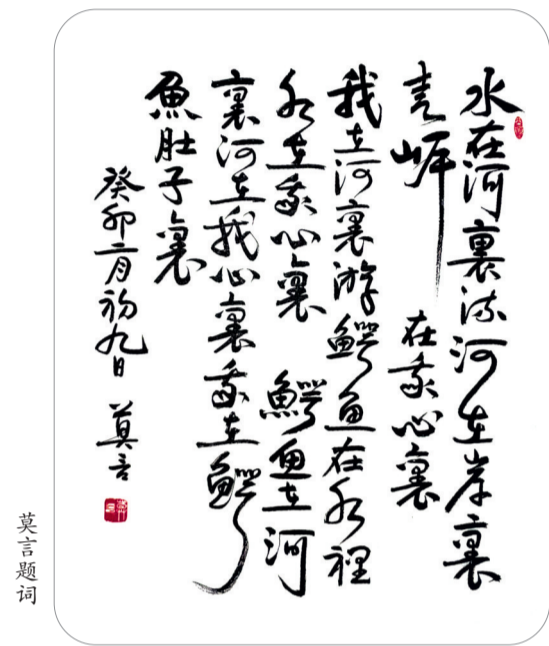 水在河裏流河在岸裏
走岸 在我心裏
我在河裏游鰐魚在水裡
水在我心裏 鰐魚在河
裏河在我心裏我在鰐
魚肚子裏
癸卯二月初九日 莫言
莫言题词